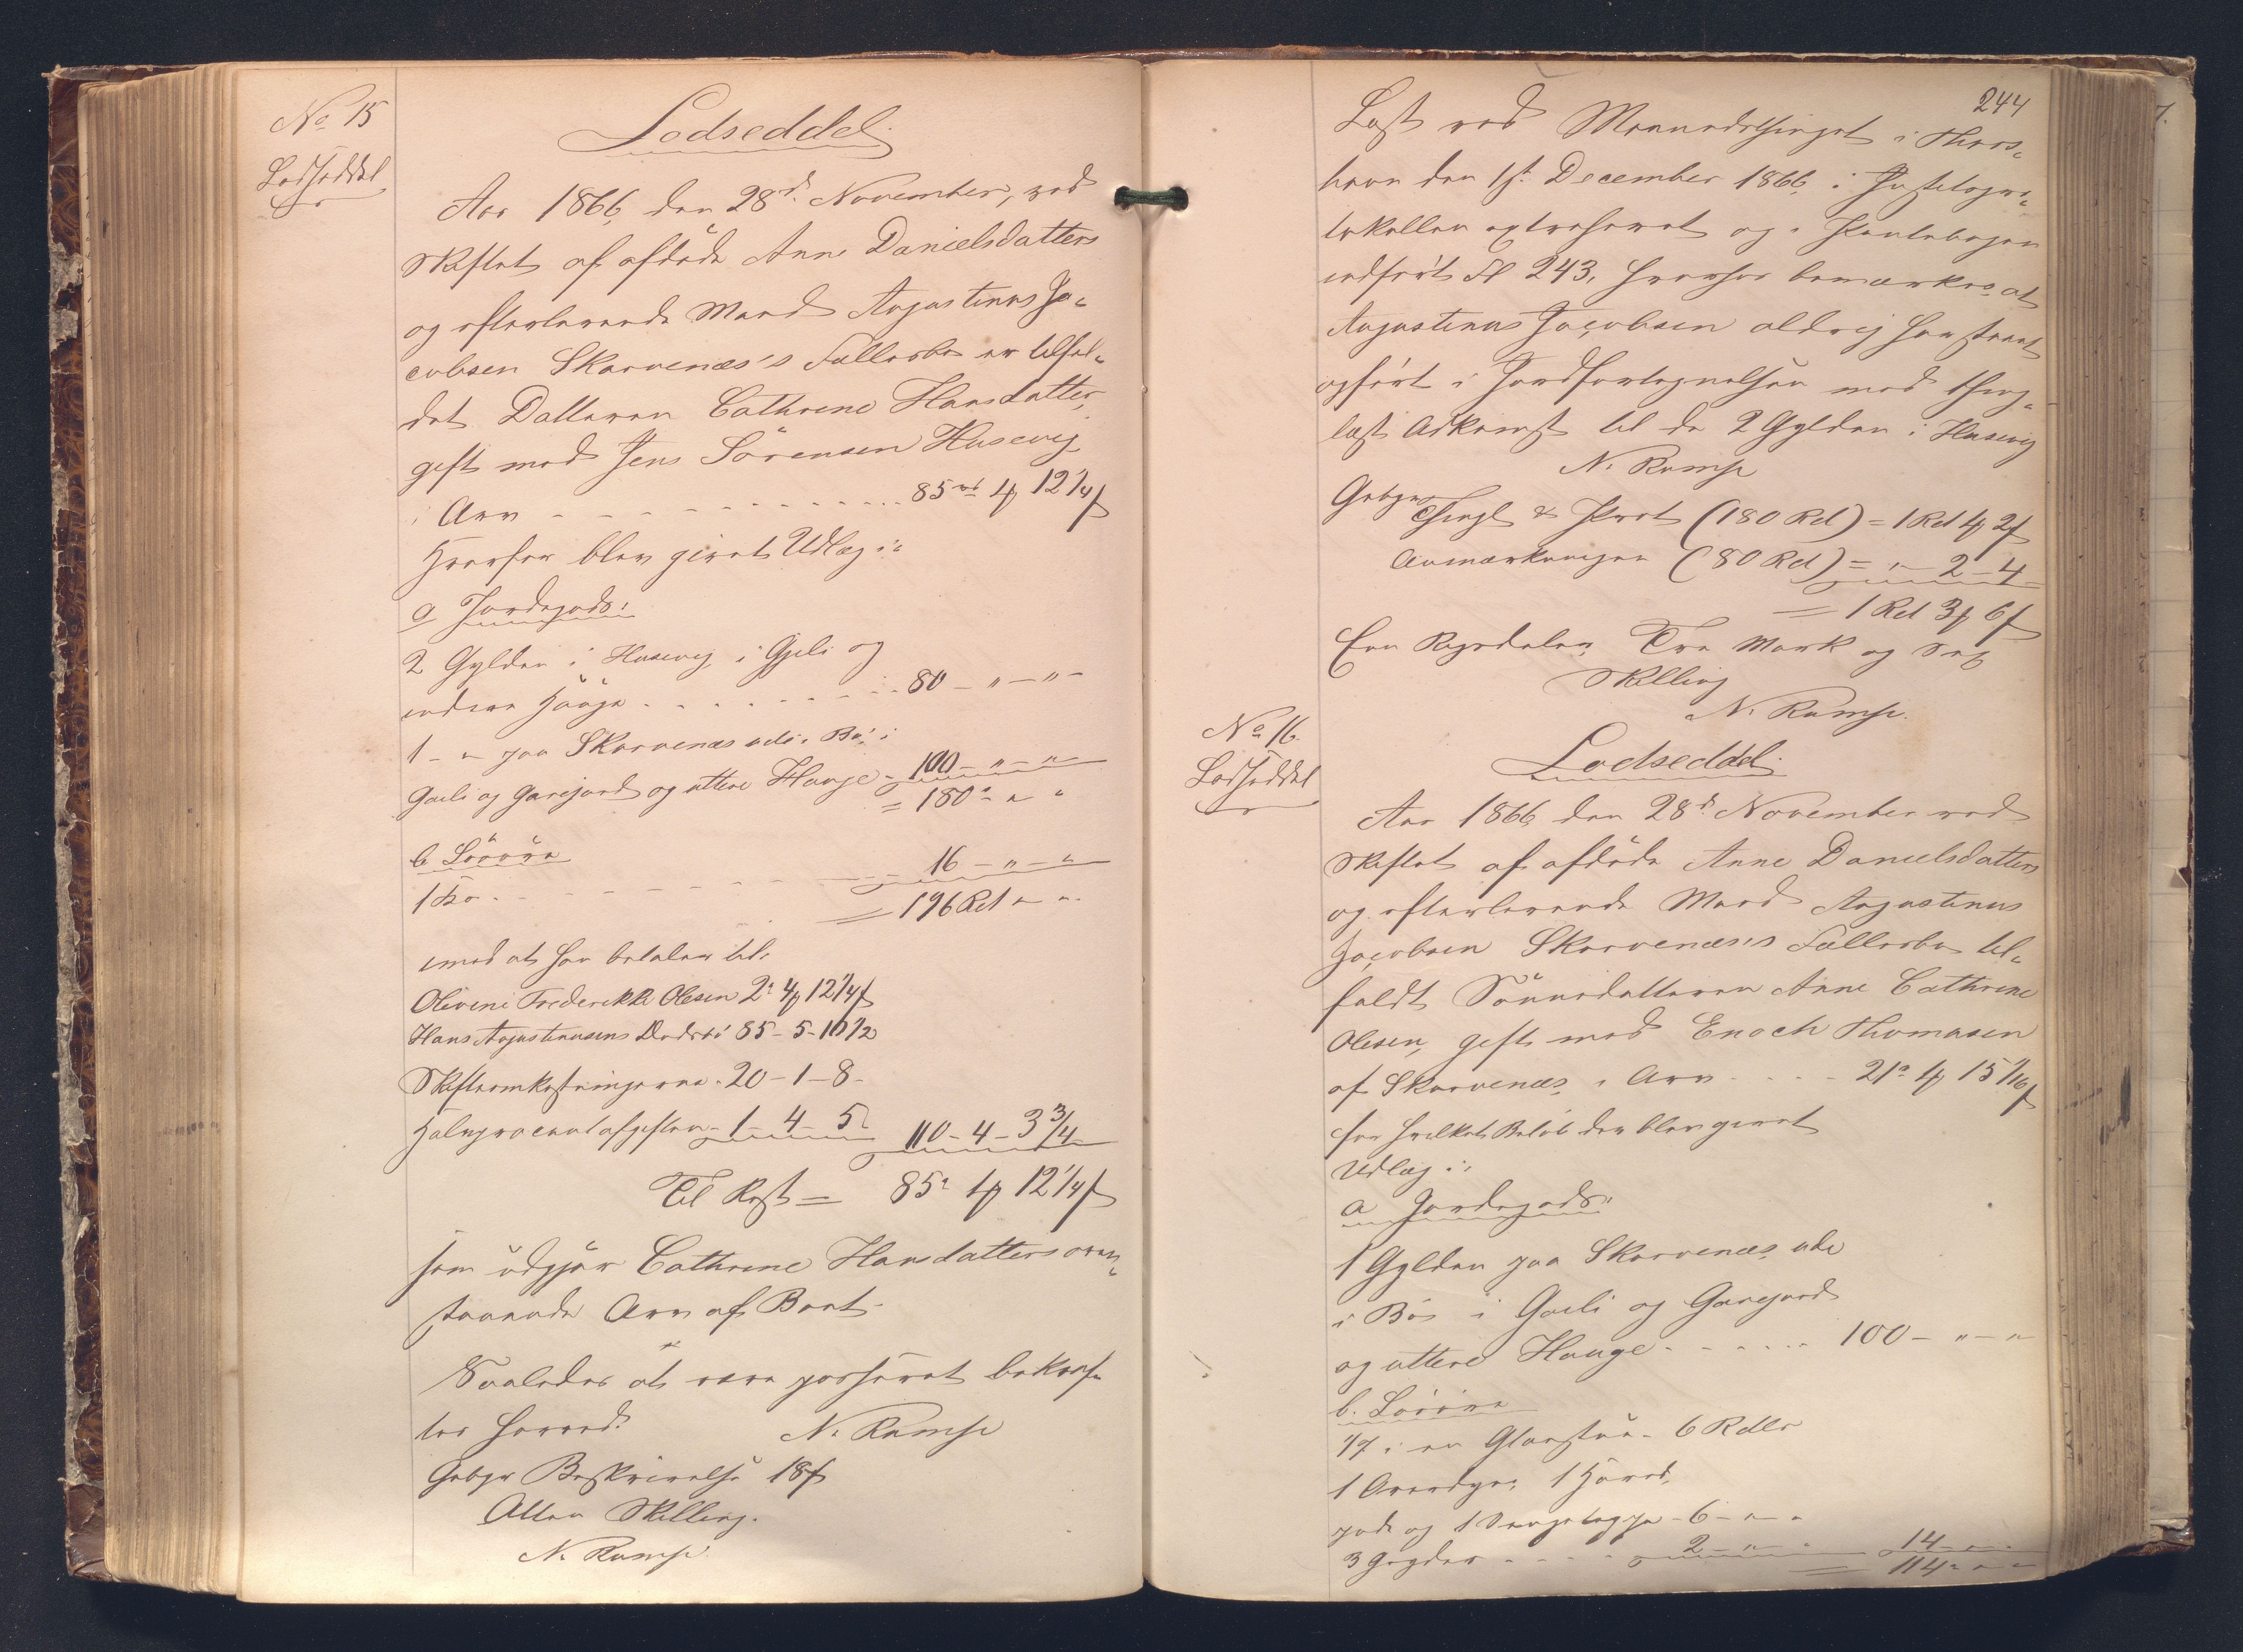 No 15
Lodseddel
Lodseddel
Aar 1866 den 28d November, ved
Skiftet af afdöde Anne Danielsdatters
og efterlevende Mand Augustinus Ja-
cobsen Skarvenæs's Fællesbo er tilfal-
det Datteren Cathrine Hansdatter,
gift med Jens Sörensen Husevig
i Arv - - - - - - 85 rd 4 ꝑ 12 1/4 ß
Hvorfor blev givet Udlæg i:
a Jordegods:
2 Gylden i Husevig i Gjeli og
indera Höuje . . . . . . 80 - " - " -
1 - " paa Skarvenæs ude i Bö, i
Gaeli og Garejord og uttere Hauge - 100 - " - " -
= 180 " - " "
b Lösöre
1 Ko - - - - - - 16 - " - "
= 196 Rd " - "
imod at han betaler til:
Olevine Frederikke Olesen 2 " 4 ꝑ 12 1/4 ß
Hans Augustinusens Dödsbo 85 - 5 - 10 1/2
Skifteomkostningerne . 20 - 1 - 8 -
Halvprocentafgiften - 1 - 4 - 5 110 - 4 - 3 3/4
Til Rest = 85 " 4 ꝑ 12 1/4 ß
som udgjör Cathrine Hansdatters oven-
staaende Arv af Boet.
Saaledes at være passeret bekræf-
tes herved. N. Rumse
Gebyr Beskrivelse 18 ß
Atten Skilling.
N. Rumse
244
Læst ved Maanedsthinget i Thors-
havn den 1st December 1866, i Justitspro-
tokollen extraheret og i Pantebogen
indfört Fl 243, hvorhos bemærkes, at
Augustinus Jacobsen aldrig har staaet
opfört i Jordfortegnelsen med thing-
læst Adkomst til de 2 Gylden i Husevig
N. Rumse
Gebyr Thingl & Prot (180 Rd) = 1 Rd 4 ꝑ 2 ß
Anmærkningen (80 Rd) = " - 2 - 4
= 1 Rd 3 ꝑ 6 ß
Een Rigsdaler, Tre Mark og sex
Skilling
N. Rumse.
No 16.
Lodseddel
Lodseddel
Aar 1866 den 28d November ved
Skiftet af afdöde Anne Danielsdatters
og efterlevende Mand Augustinus
Jacobsen Skarvenæs's Fællesbo til-
faldt Sönnedatteren Anne Cathrine
Olesen, gift med Enoch Thomasen
af Skarvenæs, i Arv . . . - 21 " 4 ꝑ 15 1/16 ß
for hvilket Belöb der blev givet
Udlæg i:
a Jordegods:
1 Gylden paa Skarvenæs ude
i Bö i Gaeli og Garejord
og uttere Hauge - - - - - 100 - " - "
b. Lösöre
1/7 i en Glasstue - 6 Rdlr
1 Overdyne, 1 Hoved-
pude og 1 Sengetæppe - 6 - " - "
3 Gryder - - - - 2 - " - " 14 - " - "
= 114 " - "